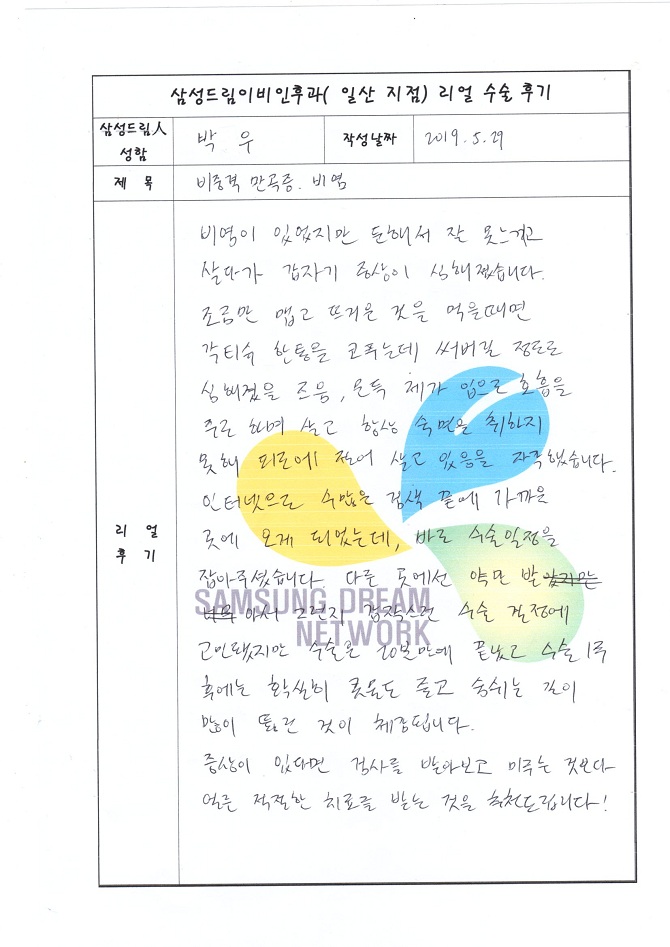 삼성드림이비인후과( 일산 지점) 리얼 수술 후기
삼성드림人 성함
박 우
작성날짜
2019. 5. 29
제 목
비중격 만곡증. 비염
리 얼 후 기
비염이 있었지만 둔해서 잘 못느끼고
살다가 갑자기 증상이 심해졌습니다.
조금만 맵고 뜨거운 것을 먹을때면
각티슈 한통을 코푸는데 써버릴 정도로
심해졌을 즈음, 문득 제가 입으로 호흡을
주로 하며 살고 항상 숙면을 취하지
못해 피로에 절어 살고 있음을 자각했습니다.
인터넷으로 수많은 검색 끝에 가까운
곳에 오게 되었는데, 바로 수술일정을
잡아주셨습니다. 다른 곳에선 약만 받
아서 그런지 갑작스런 수술 결정에
고민됐지만 수술은 20분만에 끝났고 수술 1주
후에는 확실히 콧물도 줄고 숨쉬는 길이
많이 뚫린 것이 체감됩니다.
증상이 있다면 검사를 받아보고 미루는 것보다
얼른 적절한 치료를 받는 것을 추천드립니다!
SAMSUNG DREAM
NETWORK